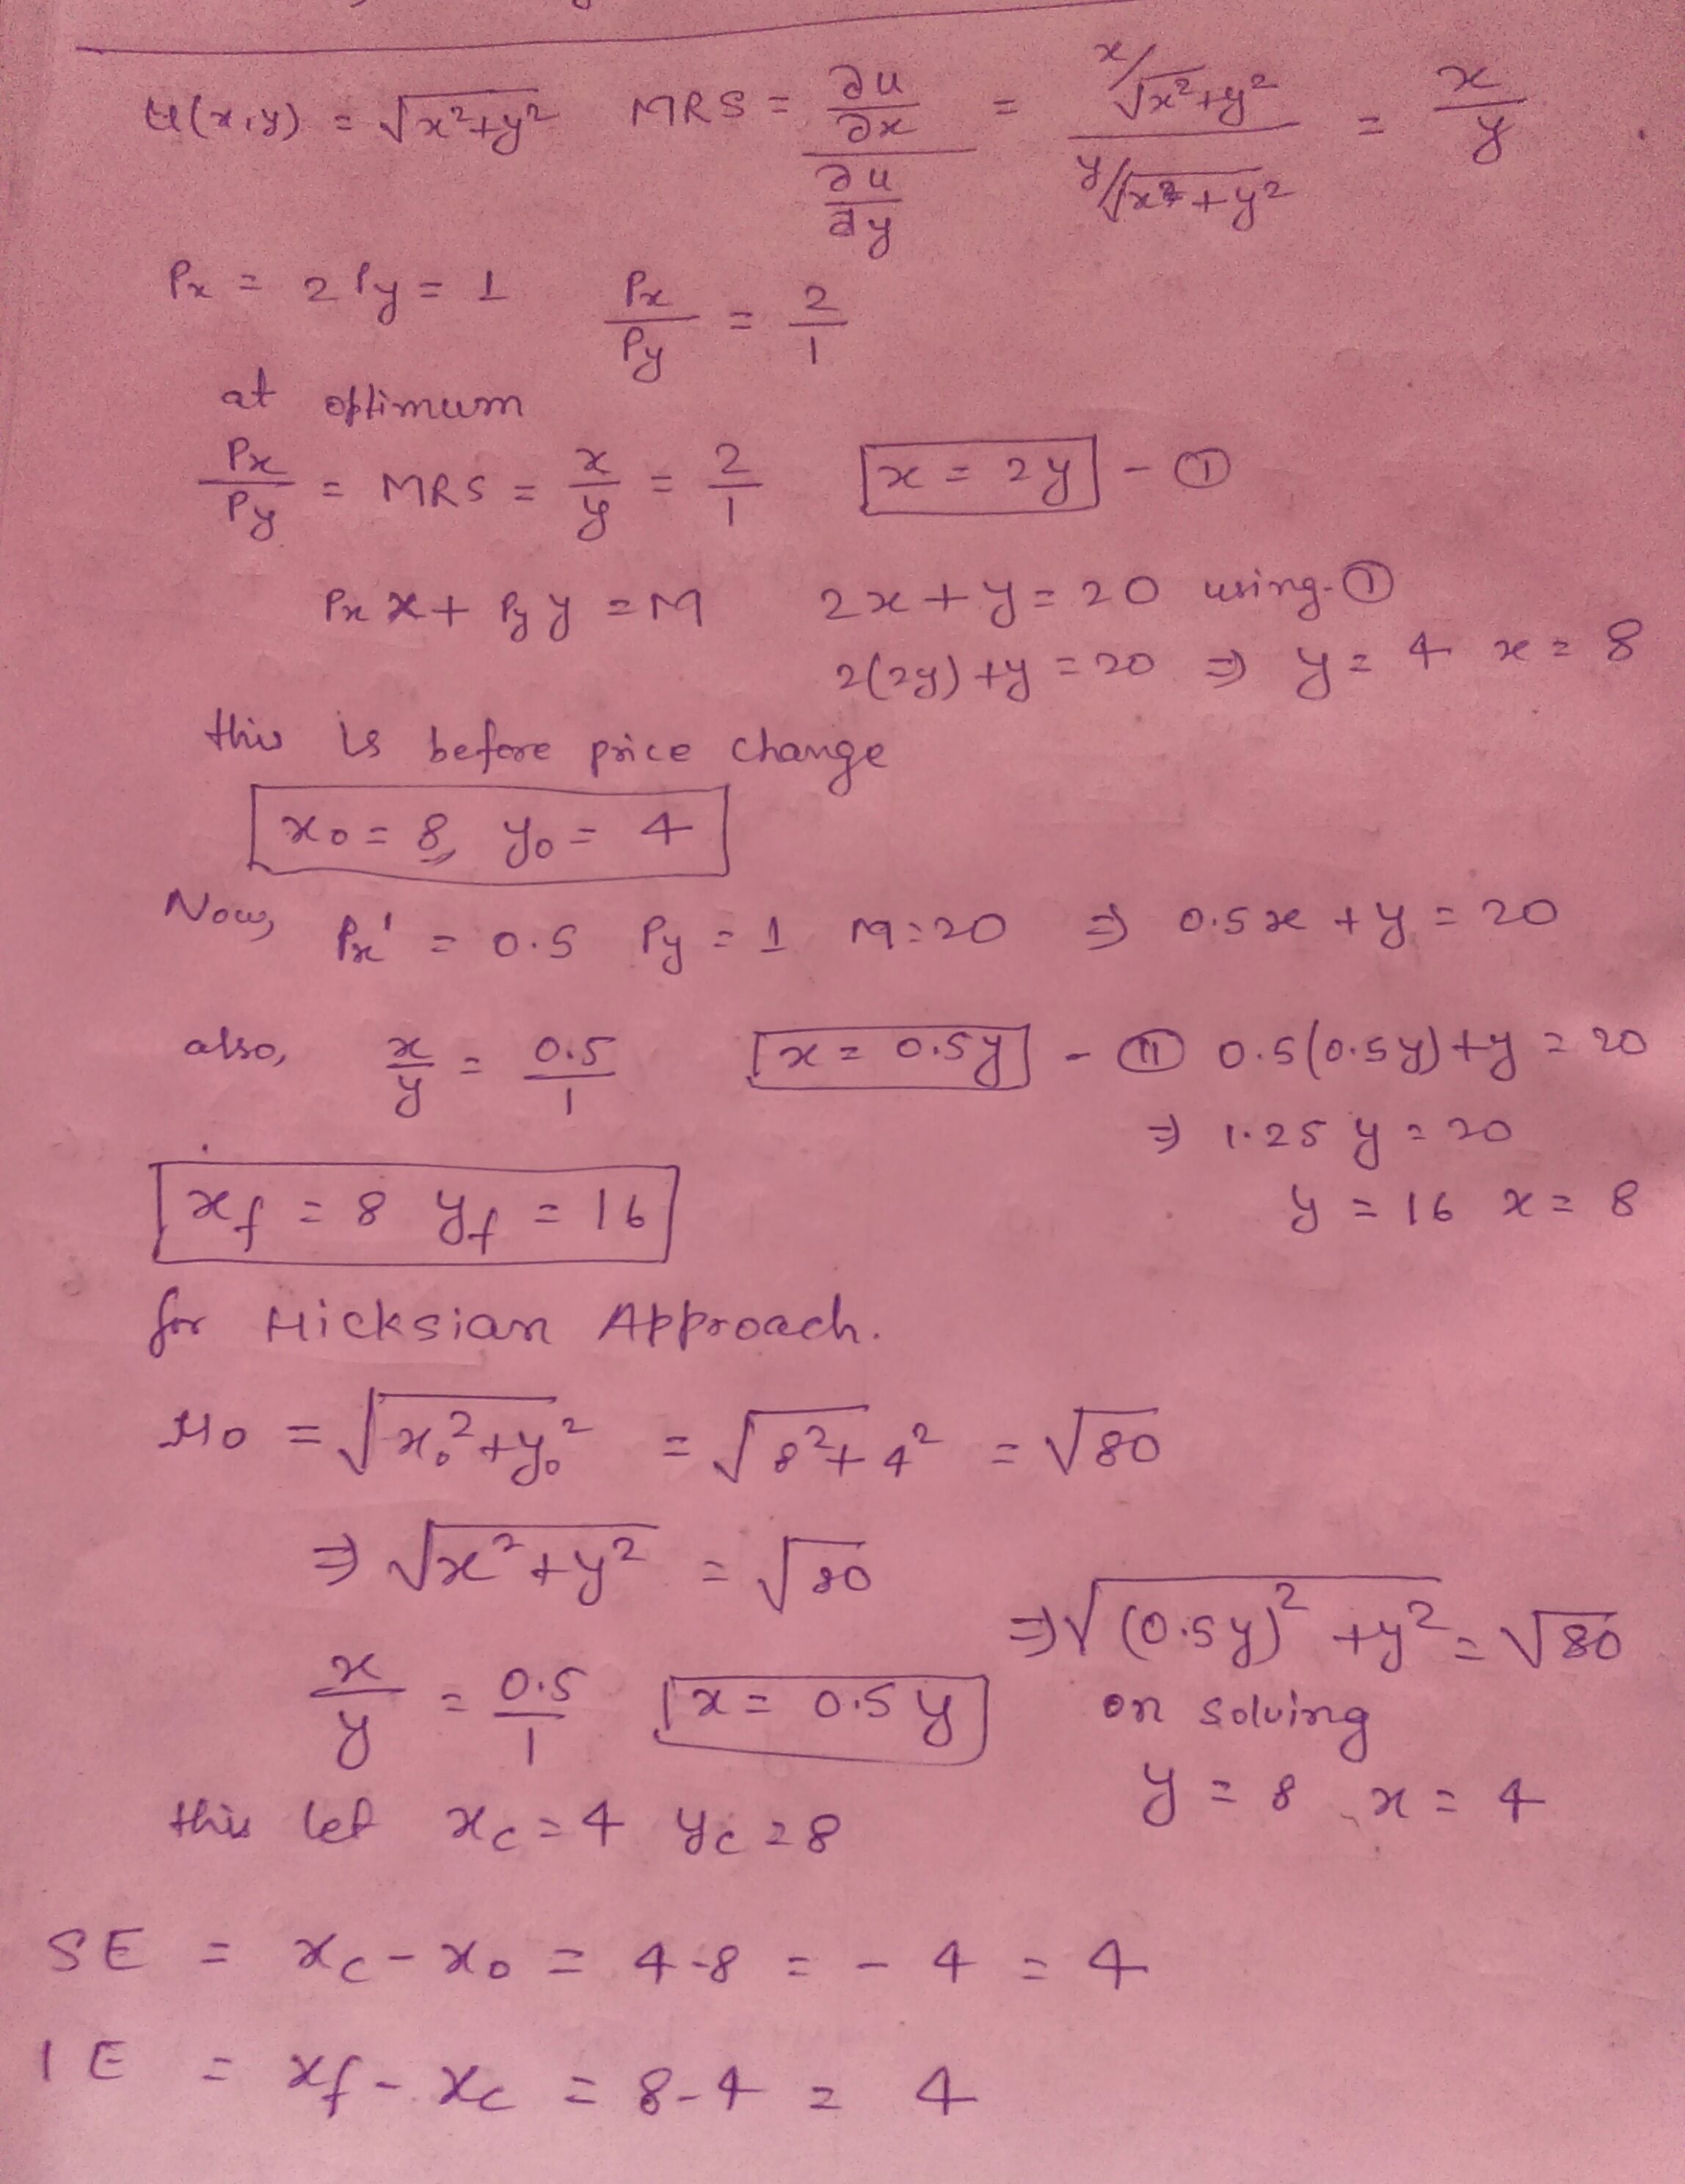 u(x,y) = √x²+y² MRS = ∂u/∂x / ∂u/∂y = x/√x²+y² / y/√x²+y² = x/y
Px = 2 Py = 1 Px/Py = 2/1
at optimum
Px/Py = MRS = x/y = 2/1 x = 2y - ①
Px x + Py y = M 2x + y = 20 using - ①
2(2y) + y = 20 ⇒ y = 4 x = 8
this is before price change
x₀ = 8, y₀ = 4
Now, Px' = 0.5 Py = 1 M = 20 ⇒ 0.5x + y = 20
also, x/y = 0.5/1 x = 0.5y - ⑪ 0.5(0.5y) + y = 20
⇒ 1.25 y = 20
xf = 8 yf = 16 y = 16 x = 8
for Hicksian Approach.
u₀ = √x₀²+y₀² = √8²+4² = √80
⇒ √x²+y² = √80
⇒ √(0.5y)²+y² = √80
x/y = 0.5/1 x = 0.5y on solving
y = 8, x = 4
this let xc = 4 yc = 8
SE = xc - x₀ = 4-8 = -4 = 4
IE = xf - xc = 8-4 = 4